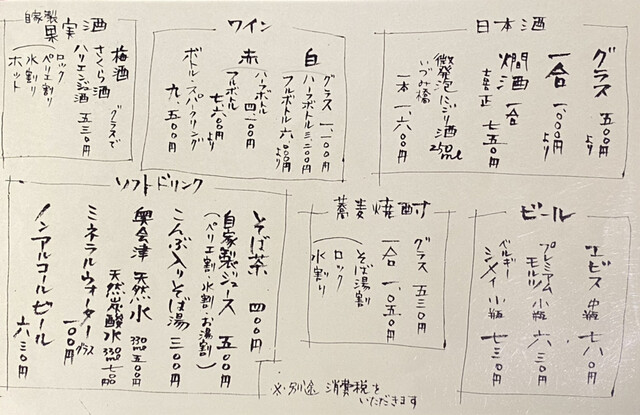 日本酒
グラス 五〇〇円より
一合 一,〇〇〇円より
燗酒 一合
七五〇円
微発泡にごり酒 250ml
いづみ橋
一本 一,六〇〇円
ワイン
白
グラス 一,一〇〇円
ハーフボトル 三,二〇〇円
フルボトル 六,〇〇〇円より
赤
ハーフボトル 四,一〇〇円
フルボトル 七,六〇〇円より
ボトル・スパークリング
九,五〇〇円
自家製
果実酒
梅酒
さくら酒
ハリエンジュ酒
グラスで
五三〇円
(ロック
ペリエ割り
水割り
ホット
ビール
ヱビス 中瓶 七八〇円
プレミアムモルツ 小瓶 六三〇円
ベルギー
シメイ 小瓶 七三〇円
蕎麦焼酎
グラス 五三〇円
一合 一,〇五〇円
(そば湯割
ロック
水割り
ソフトドリンク
そば茶 四〇〇円
自家製ジュース 五〇〇円
(ペリエ割・水割・お湯割)
こんぶ入りそば湯 三〇〇円
奥会津 天然水 330ml 五〇〇円
天然炭酸水 330ml 七〇〇円
ミネラルウォーター グラス
一〇〇円
ノンアルコールビール
六三〇円
※別途 消費税を
いただきます